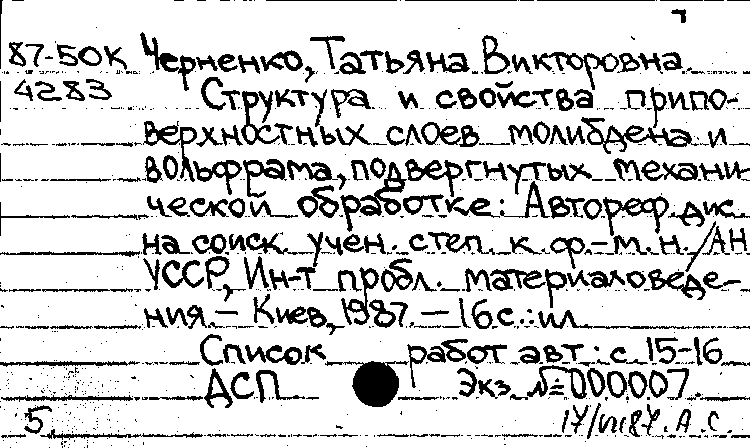 87-50К Черненко, Татьяна Викторовна
4283 Структура и свойства припо-
верхностных слоев молибдена и
вольфрама, подвергнутых механи
ческой обработке: Автореф. дис.
на соиск. учен. степ. к. ф.-м. н. / АН
УССР, Ин-т пробл. материаловеде-
ния. – Киев, 1987. – 16 с.: ил
Список работ авт.: с. 15-16
ДСП Экз. №000007.
5. 17/VII87. А. С.